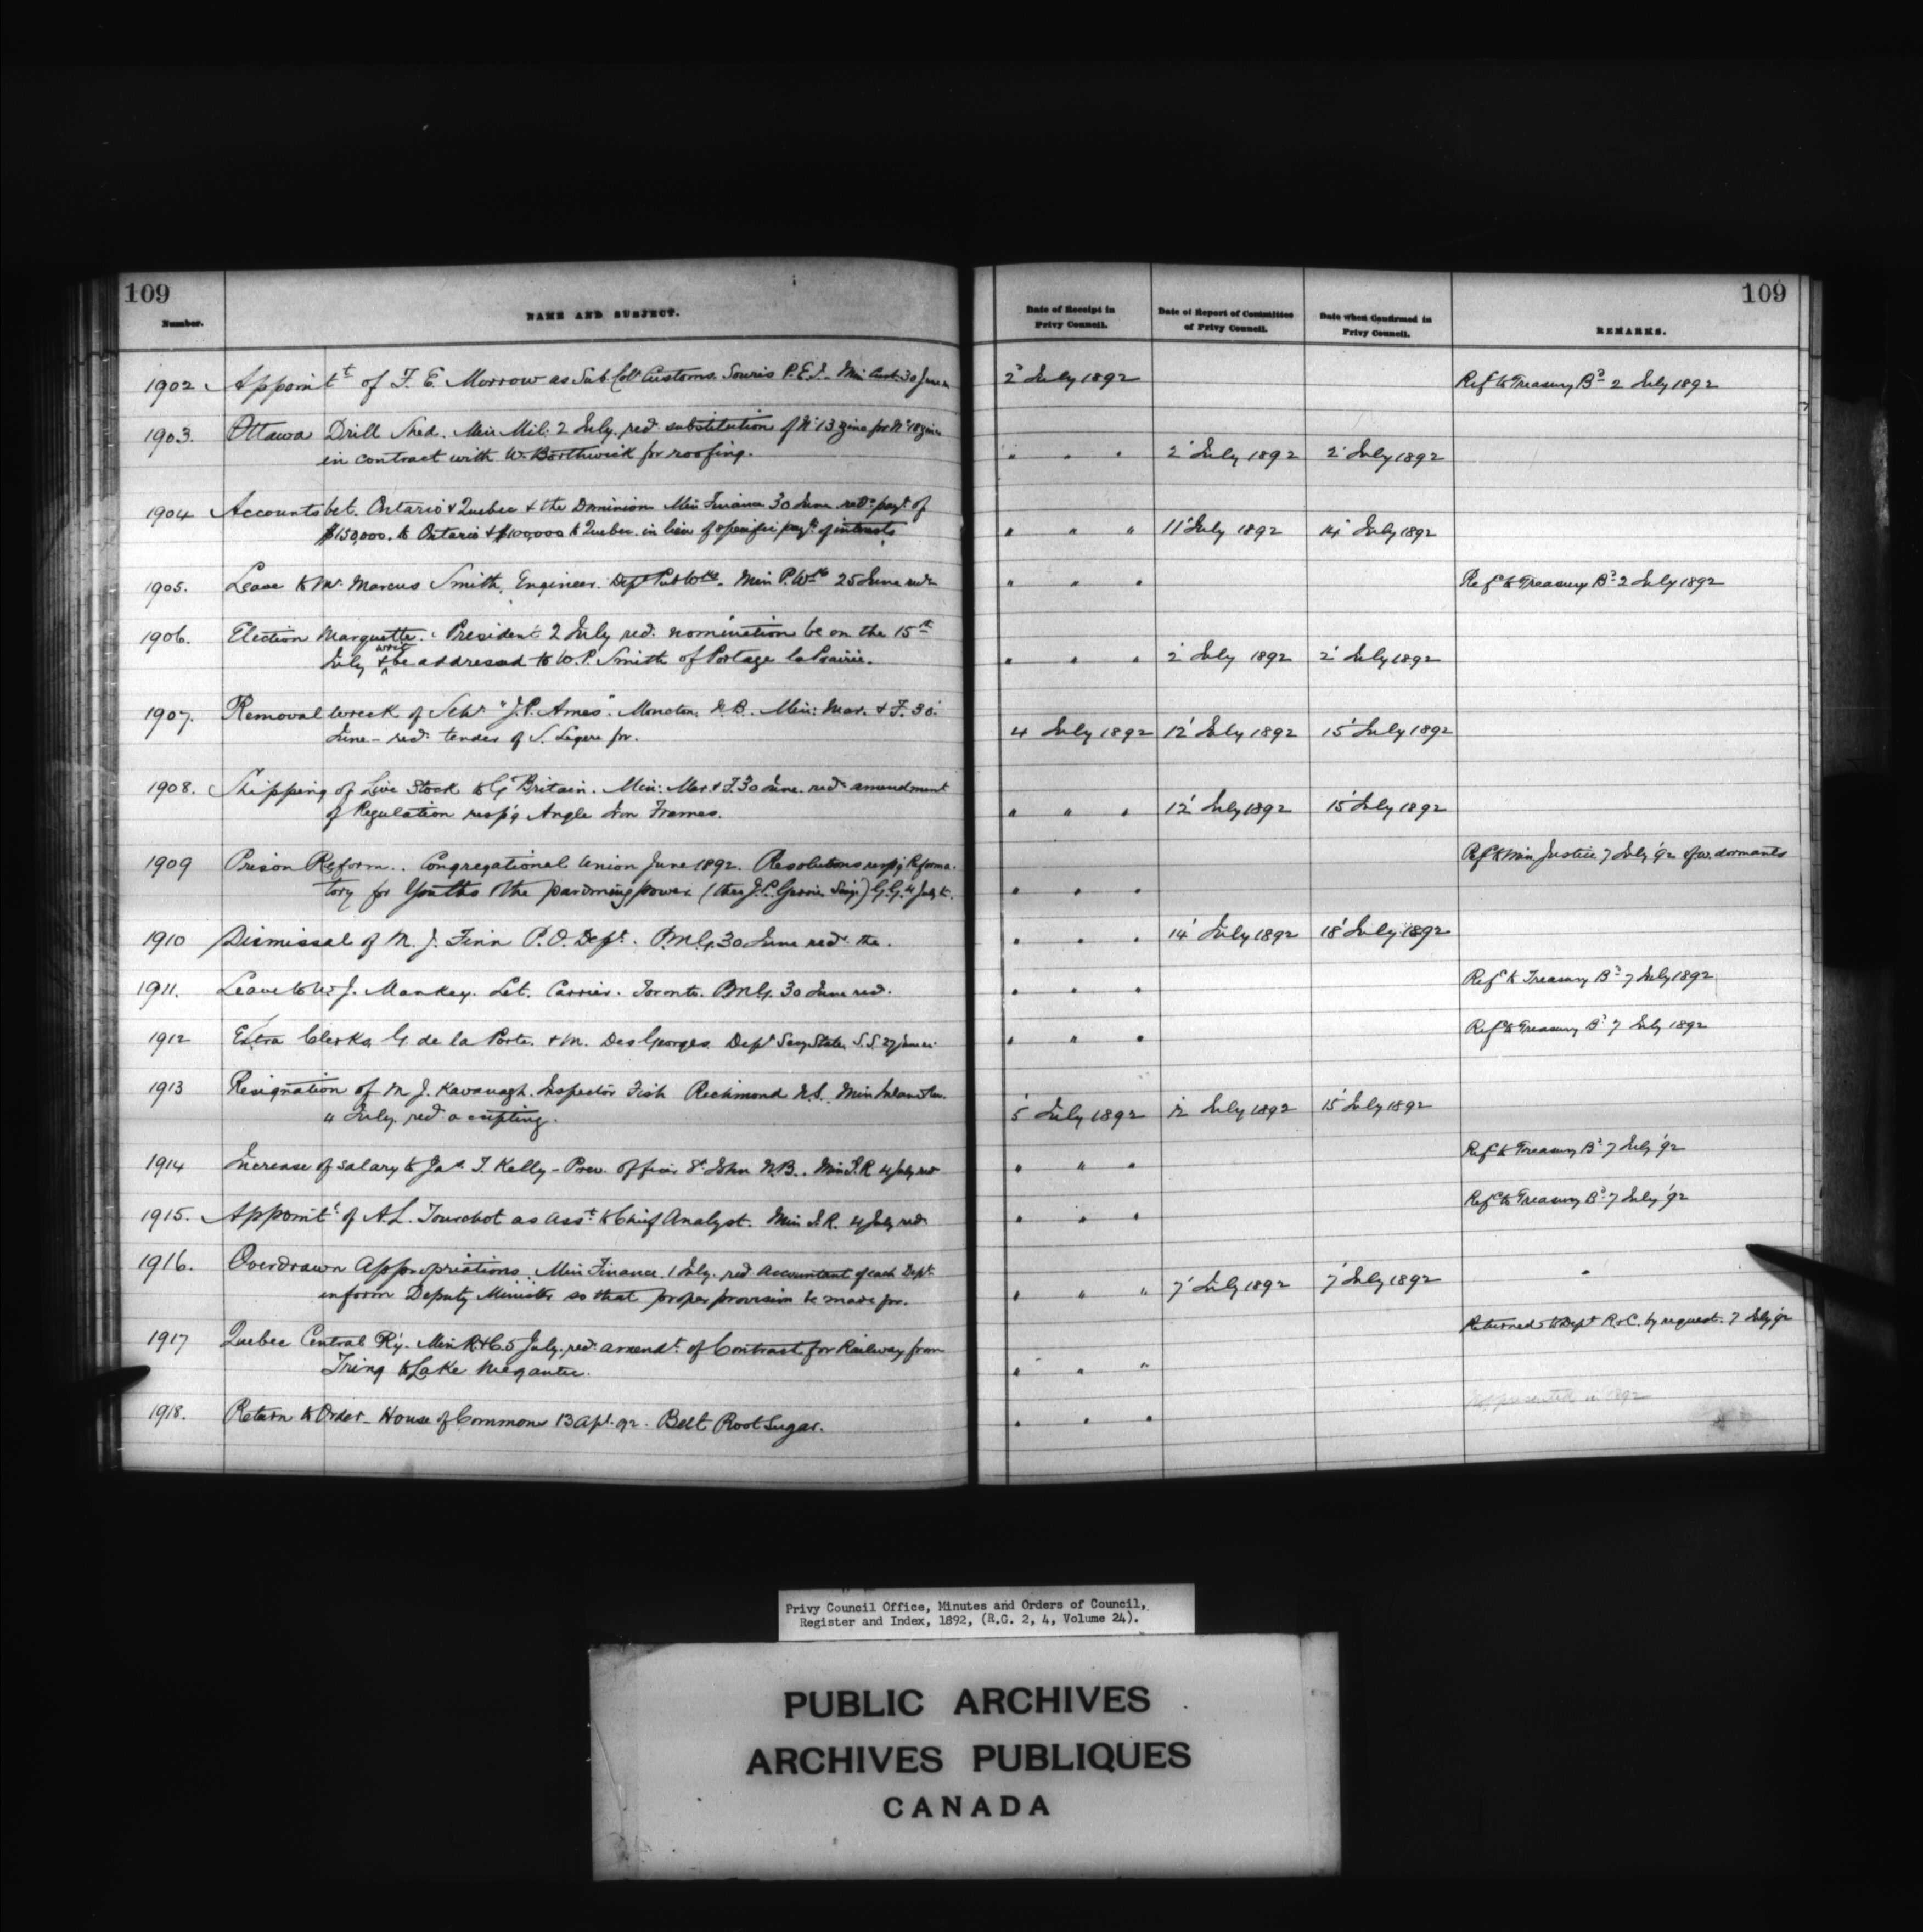 109
109
Number.
NAME AND SUBJECT.
Date of Receipt in Privy Council.
Date of Report of Committee of Privy Council.
Date when Confirmed in Privy Council.
REMARKS.
1902. Appointt of F. E. Morrow as Sub Coll Customs. Souris P.E.I. Min Cust 30 June 2' July 1892 Refd to Treasury Bd 2 July 1892
1903. Ottawa Drill Shed. Min Mil: 2 July. recd substitution of No 13 zinc for No 18 zinc
in contract with W. Borthwick for roofing. " " " 2' July 1892 2' July 1892
1904 Accounts bet. Ontario & Quebec & the Dominion Min Finance 30 June payt of
$150,000. to Ontario & $100,000 to Quebec in lieu of specific payt of " " " 11' July 1892 14' July 1892
1905. Leave to Mr Marcus Smith, Engineer. Dept Pub Wks. Min P. Wks 25 June recd " " " Refd to Treasury Bd 2 July 1892
1906. Election Marquette. President 2 July recd. nomination be on the 15th
July & writ be addressed to W. P. Smith of Portage la Prairie. " " " 2' July 1892 2' July 1892
1907. Removal wreck of Schr "J. P. Ames". Moncton, N.B. Min: Mar. & F. 30'
June - recd tender of S. Legere for. 4 July 1892 12' July 1892 15' July 1892
1908. Shipping of Live Stock to G Britain. Min: Mar & F. 30 June. recd amendment
of Regulation resp'g Angle Iron Frames. " " " 12' July 1892 15' July 1892
1909 Prison Reform. Congregational Union June 1892. Resolutions resp'g Reforma-
tory for Youths & the pardoning power G.G. 4 July " " " Ref to Min Justice 7 July '92
1910 Dismissal of M. J. Finn P. O. Dept. P.M.G. 30 June recd the. " " " 14' July 1892 18' July 1892
1911. Leave to W. J. Mankey. Let. Carrier. Toronto. P.M.G. 30 June recd. " " " Refd to Treasury Bd 7 July 1892
1912 Extra Clerks, G. de la Porte. & M. Des Georges. Dept Secy State. S.S. 27 June " " " Refd to Treasury Bd 7 July 1892
1913 Resignation of M J. Kavanagh. Inspector Fish Richmond N.S. Min Inland Rev.
4 July recd accepting. 5' July 1892 12 July 1892 15' July 1892
1914 Increase of salary to Jas. T. Kelly - Prev. Officer St John N.B. Min I.R 4 July recd " " " Refd to Treasury Bd 7 July '92
1915. Appointt of A. L. Tourchot as Asst to Chief Analyst. Min I. R. 4 July recd " " " Refd to Treasury Bd 7 July '92
1916. Overdrawn Appropriations. Min Finance. 1 July. recd accountant of each Dept
inform Deputy Minister so that proper provision be made for. " " " 7' July 1892 7' July 1892
1917 Quebec Central Ry. Min R & C. 5 July. recd amendt of Contract for Railway from
Tring to Lake Megantic. " " " Returned to Dept R & C. by request. 7 July '92
1918. Return to Order - House of Commons 13 Apl. 92. Beet Root Sugar. " " "
Privy Council Office, Minutes and Orders of Council,
Register and Index, 1892, (R.G. 2, 4, Volume 24).
PUBLIC ARCHIVES
ARCHIVES PUBLIQUES
CANADA